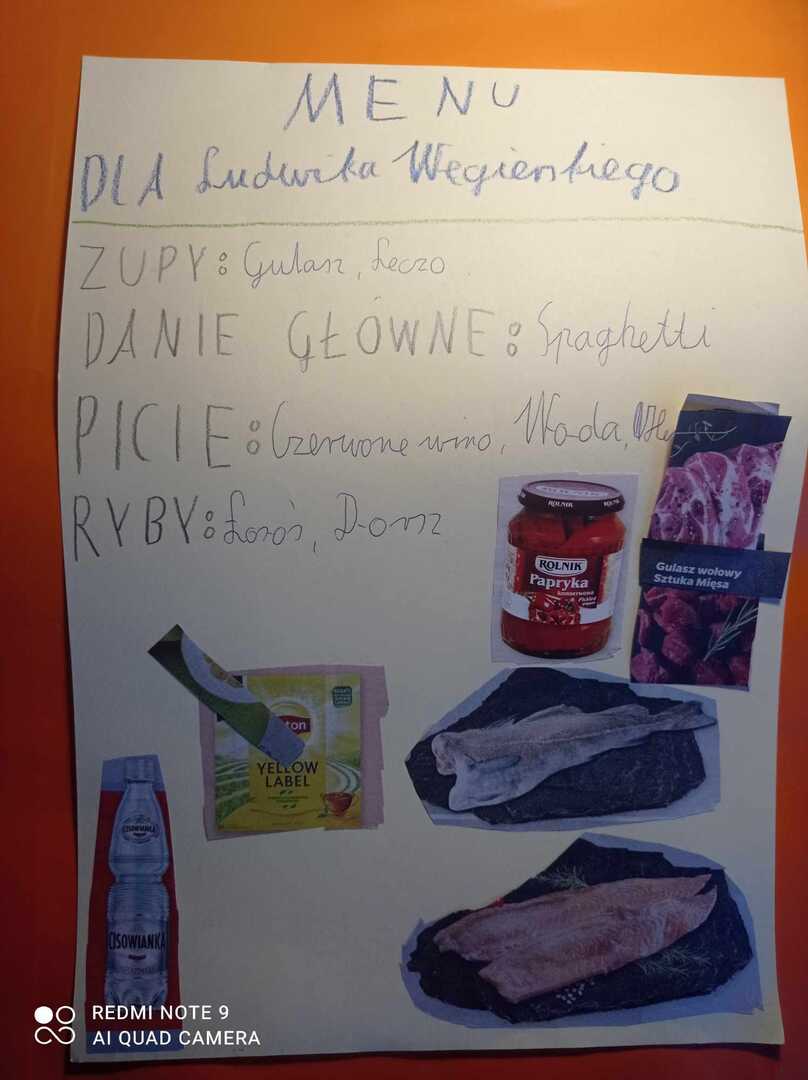 MENU
DLA Ludwika Węgierskiego
ZUPY: Gulasz, Leczo
DANIE GŁÓWNE: Spaghetti
PICIE: Czerwone wino, Woda,
RYBY: Łosoś, Dorsz
ROLNIK
ROLNIK
Papryka
konserwowa
Pickled
Gulasz wołowy
Sztuka Mięsa
YELLOW
LABEL
CISOWIANKA
CISOWIANKA
REDMI NOTE 9
AI QUAD CAMERA